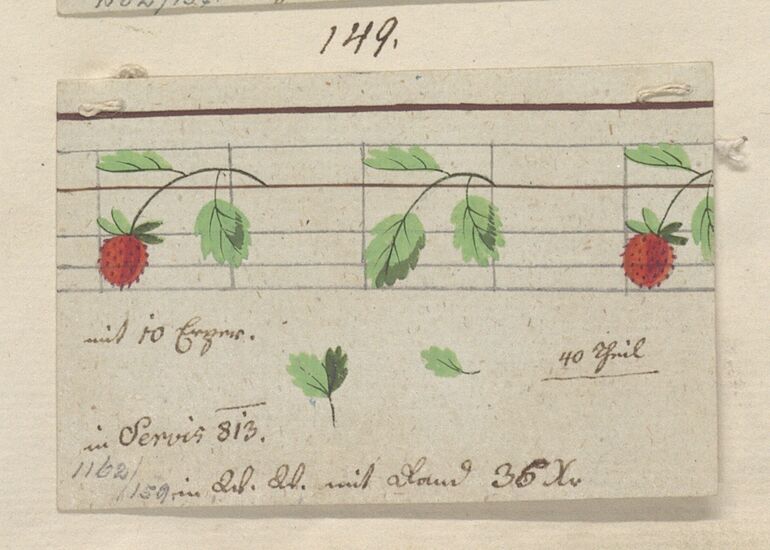 149.
mit 10
40 Theil
in Servis 813.
1162/
159 in W. W. mit Rand 36 Xr